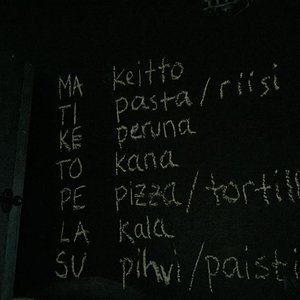 MA keitto
TI pasta/riisi
KE peruna
TO kana
PE pizza/tortill
LA kala
SU pihvi/paisti